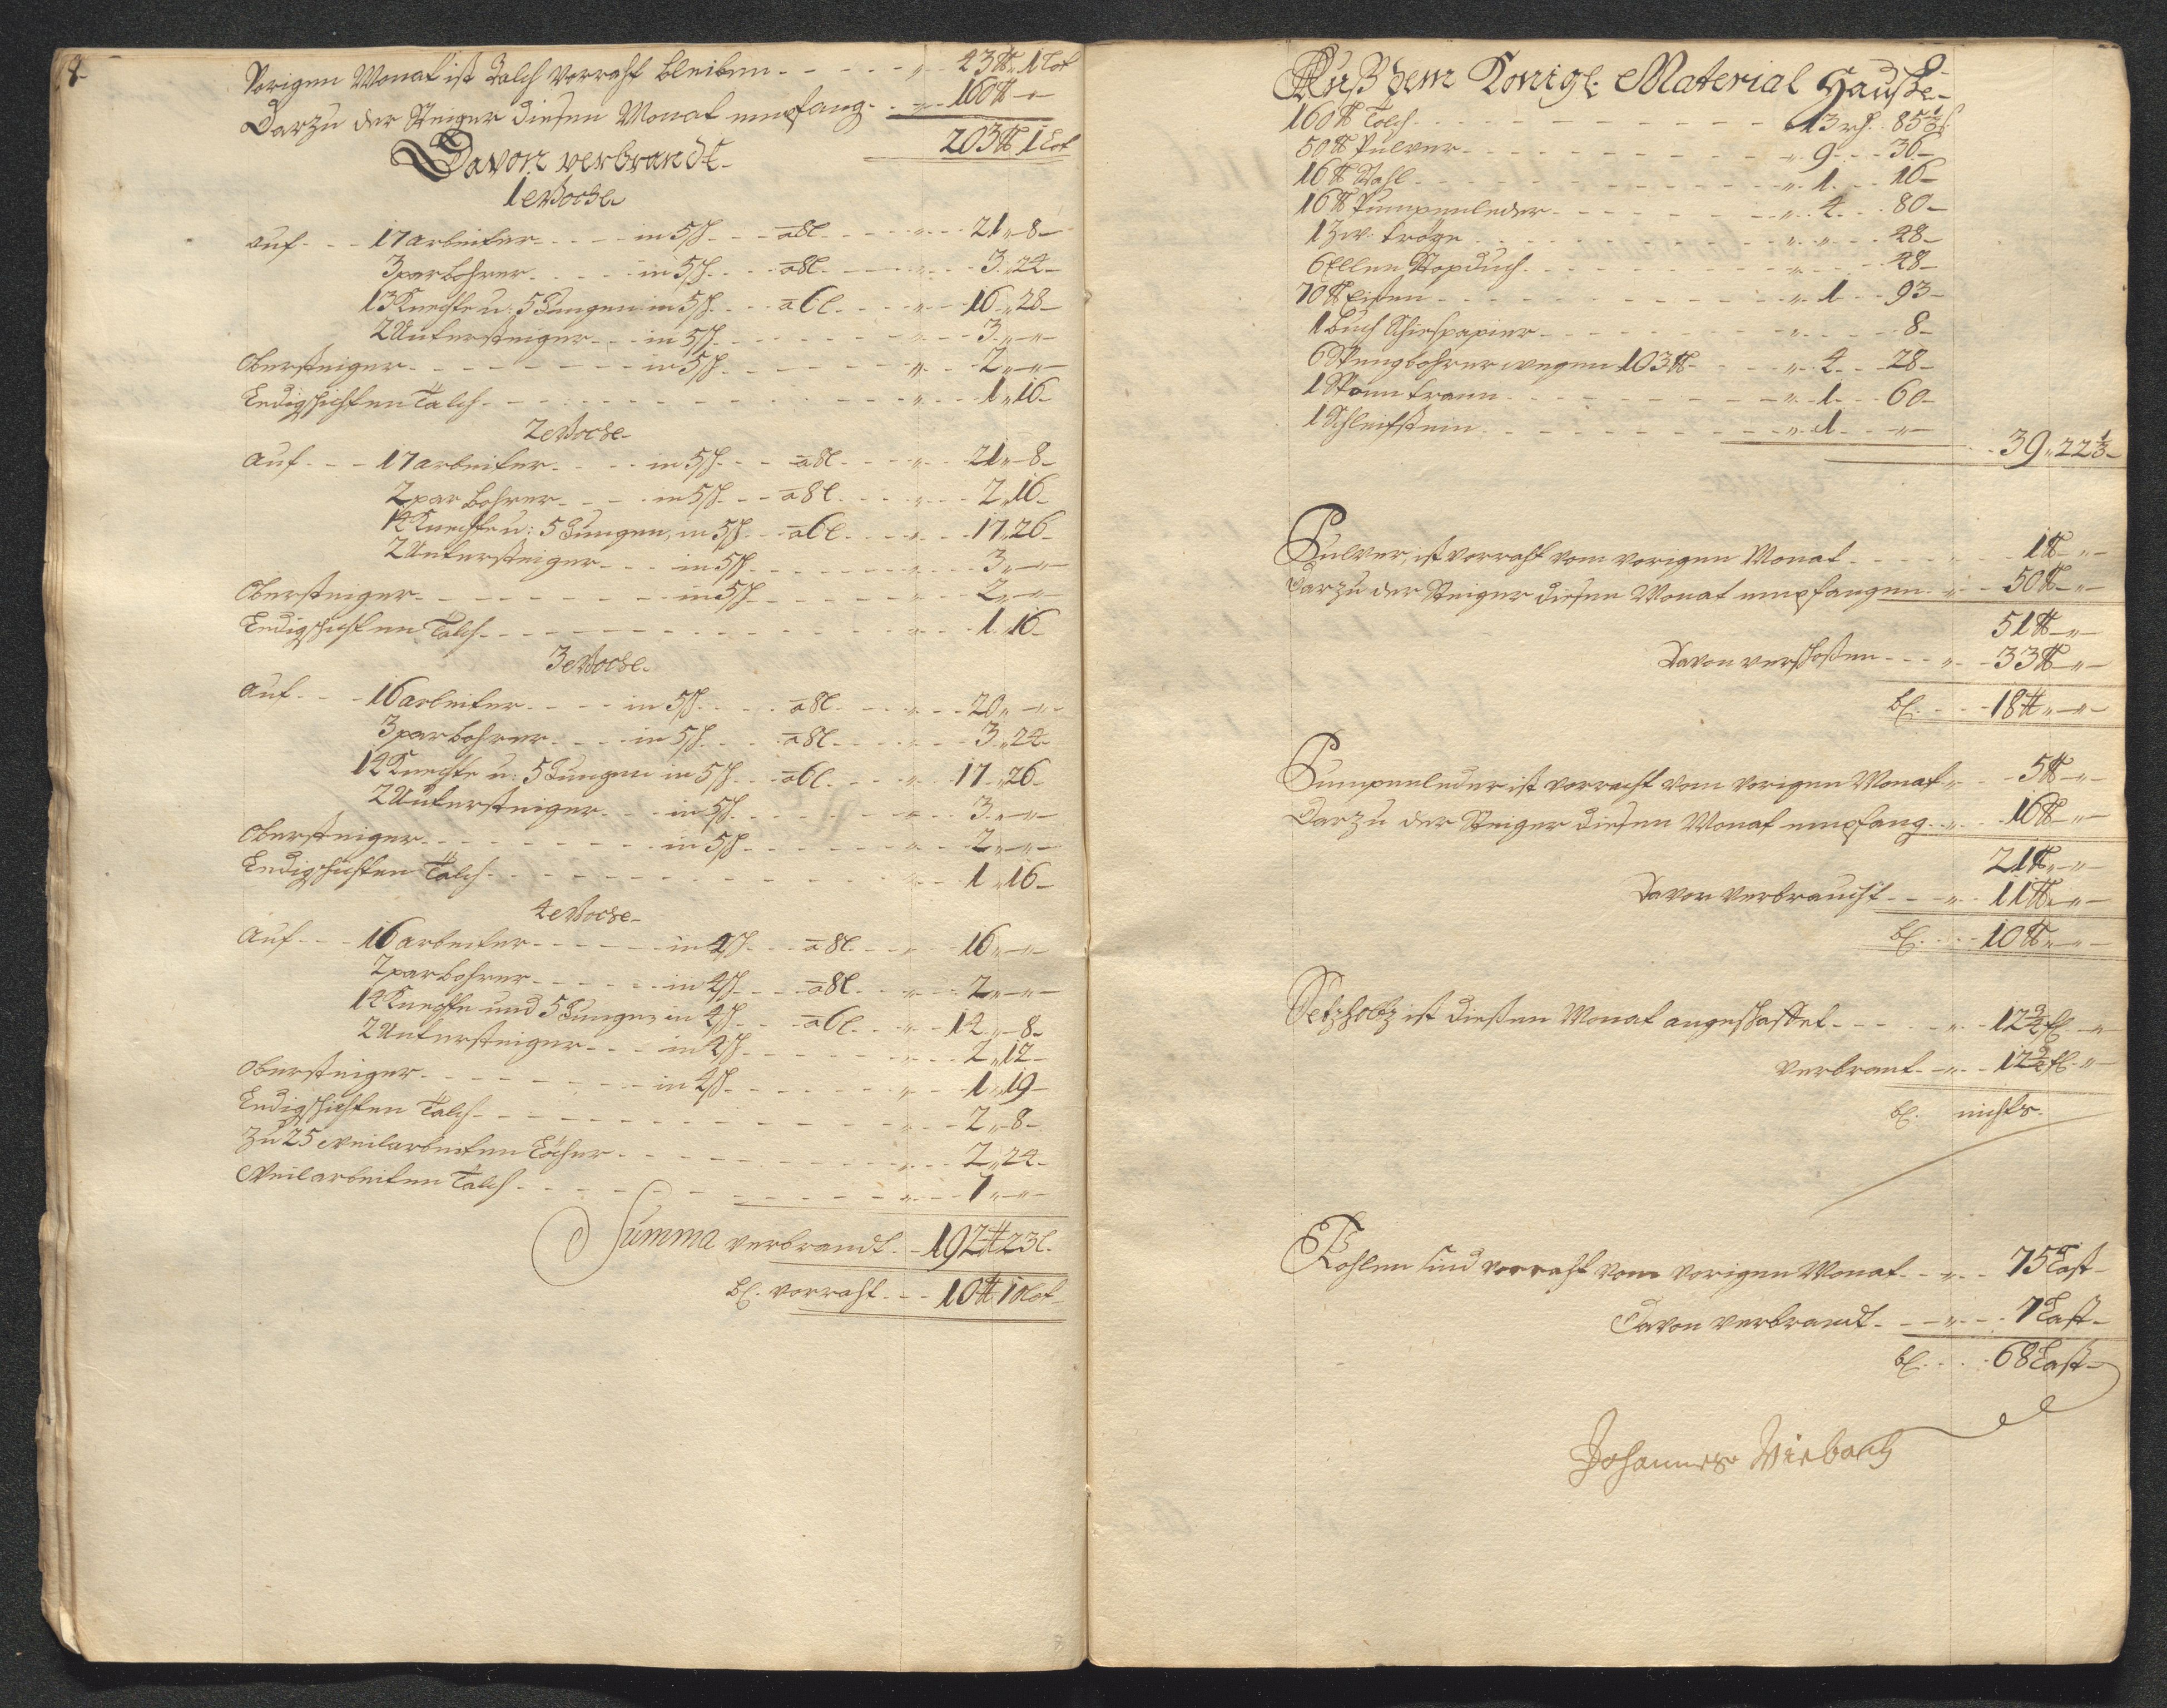 Vorigen Monat ist Talch Vorraht bleiben - - - - - „ - - 43 ℔ „ 1 Lot
Darzu der Steiger diesen Monat empfang - - „ - - 160 ℔ - „ -
203 ℔ 1 Lot
Davon verbrandt -
1 Woche
auf - - - 17 arbeiter - - - - in 5 sch - - - a 8 l - - - „ - - 21 „ 8 -
3 par bohrer - - - - in 5 sch - - - a 8 l - - - „ - - 3 „ 24 -
13 Knechte u: 5 Jungen in 5 sch - - - a 6 l - - - „ - - 16 „ 28 -
2 Untersteiger - - - in 5 sch - - - - - - „ - - 3 „ - „ -
Obersteiger - - - - - - - in 5 sch - - - - - - „ - - 2 „ - „ -
Ledigschichten Talch - - - - - - - - - - „ - - 1 „ 16 -
2 Woche -
Auf - - - 17 arbeiter - - - - in 5 sch - - - a 8 l - - - „ - - 21 „ 8 -
2 par bohrer - - - - in 5 sch - - - a 8 l - - - „ - - 2 „ 16 -
14 Knechte u: 5 Jungen, in 5 sch - - a 6 l - - - „ - - 17 „ 26 -
2 Untersteiger - - - in 5 sch - - - - - - „ - - 3 „ - „ -
Obersteiger - - - - - - - in 5 sch - - - - - - „ - - 2 „ - „ -
Ledigschichten Talch - - - - - - - - - - „ - - 1 „ 16 -
3 Woche -
Auf - - - 16 arbeiter - - - - in 5 sch - - - a 8 l - - - „ - - 20 „ - „ -
3 par bohrer - - - - in 5 sch - - - a 8 l - - - „ - - 3 „ 24 -
14 Knechte u: 5 Jungen in 5 sch - - a 6 l - - - „ - - 17 „ 26 -
2 Untersteiger - - - in 5 sch - - - - - - „ - - 3 „ - „ -
Obersteiger - - - - - - - in 5 sch - - - - - - „ - - 2 „ - „ -
Ledigschichten Talch - - - - - - - - - - „ - - 1 „ 16 -
4 Woche -
Auf - - - 16 arbeiter - - - - in 4 sch - - - a 8 l - - - „ - - 16 „ - „ -
2 par bohrer - - - - in 4 sch - - - a 8 l - - - „ - - 2 „ - „ -
14 Knechte und 5 Jungen, in 4 sch - - a 6 l - - - „ - - 14 „ 8 -
2 Untersteiger - - - in 4 sch - - - - - - „ - - 2 „ 12 -
Obersteiger - - - - - - - in 4 sch - - - - - - „ - - 1 „ 19 -
Ledigschichten Talch - - - - - - - - - - „ - - 2 „ 8 -
Zu 25 Weilarbeiten Löcher - - - - - - - - „ - - 2 „ 24 -
Weilarbeiten Talch - - - - - - - - - - „ - - 7 „ - „ -
Summa verbrandt - - 192 ℔ 23 l.
bl. vorraht - - - 10 ℔ 10 Lot -
Auß dem Königl: Material Hauße -
160 ℔ Talch - - - - - - - - - - 13 rh. 85 1/3 s
50 ℔ Pulver - - - - - - - - - „ 9 - - - 36 -
16 ℔ Stahl - - - - - - - - - „ 1 - - - 16 -
16 ℔ Pumpenleder - - - - - - - „ 4 - - - 80 -
1 Zw: tröge - - - - - - - - - „ „ - - - 48 -
6 Ellen Stopduch - - - - - - - - „ - - - 48 -
70 ℔ Eisen - - - - - - - - - „ 1 - - - 93 -
1 Buch Schiespapier - - - - - - - „ - - - 8 -
6 Stengbohrer wegen 103 ℔ - - - - „ 4 - - - 28 -
1 Tonn trann - - - - - - - - „ 1 - - - 60 -
1 Schleifstein - - - - - - - - „ 1 - - - „ -
- - 39 „ 22 1/3 -
Pulver, ist vorraht vom vorigen Monat - - - - „ - - 1 ℔ - „ -
Darzu der Steiger diesen Monat empfangen - „ - - 50 ℔ - „ -
51 ℔ - „ -
Davon verschoßen - - - „ - - 33 ℔ - „ -
bl. - - - 18 ℔ „ - „ -
Pumpenleder ist vorraht vom vorigen Monat - „ - - 5 ℔ - „ -
Darzu der Steiger diesen Monat empfang - - „ - - 16 ℔ - „ -
21 ℔ „ - „ -
Davon verbraucht - - - „ - - 11 ℔ - „ -
bl. - - - 10 ℔ „ - „ -
Setzholtz ist dießen Monat angeschaffet - - - - „ - - 12 3/4 fl - „
verbrant - - „ - - 12 3/4 fl - „
bl. nichts.
Kohlen sind vorraht vom vorigen Monat - - „ - - 75 Last -
Davon verbrandt - - - „ - - 7 Last -
bl. - - - 68 Last -
Johannes Wiebach